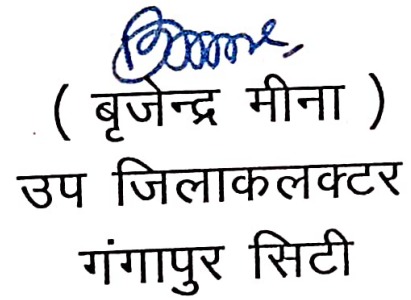 ( बृजेन्द्र मीना )
उप जिलाकलक्टर
गंगापुर सिटी